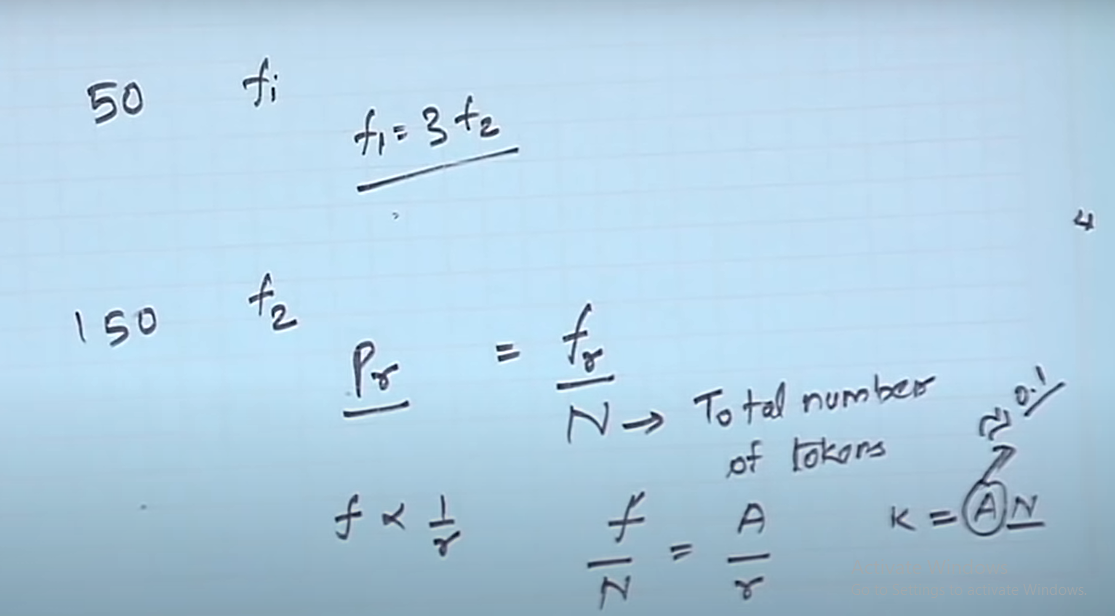 50 f₁
f₁ = 3 f₂
4
150 f₂
Pr = fr / N → Total number of tokens
≈ 0.1
f ∝ 1/r f/N = A/r K = A N
to activate Windows.